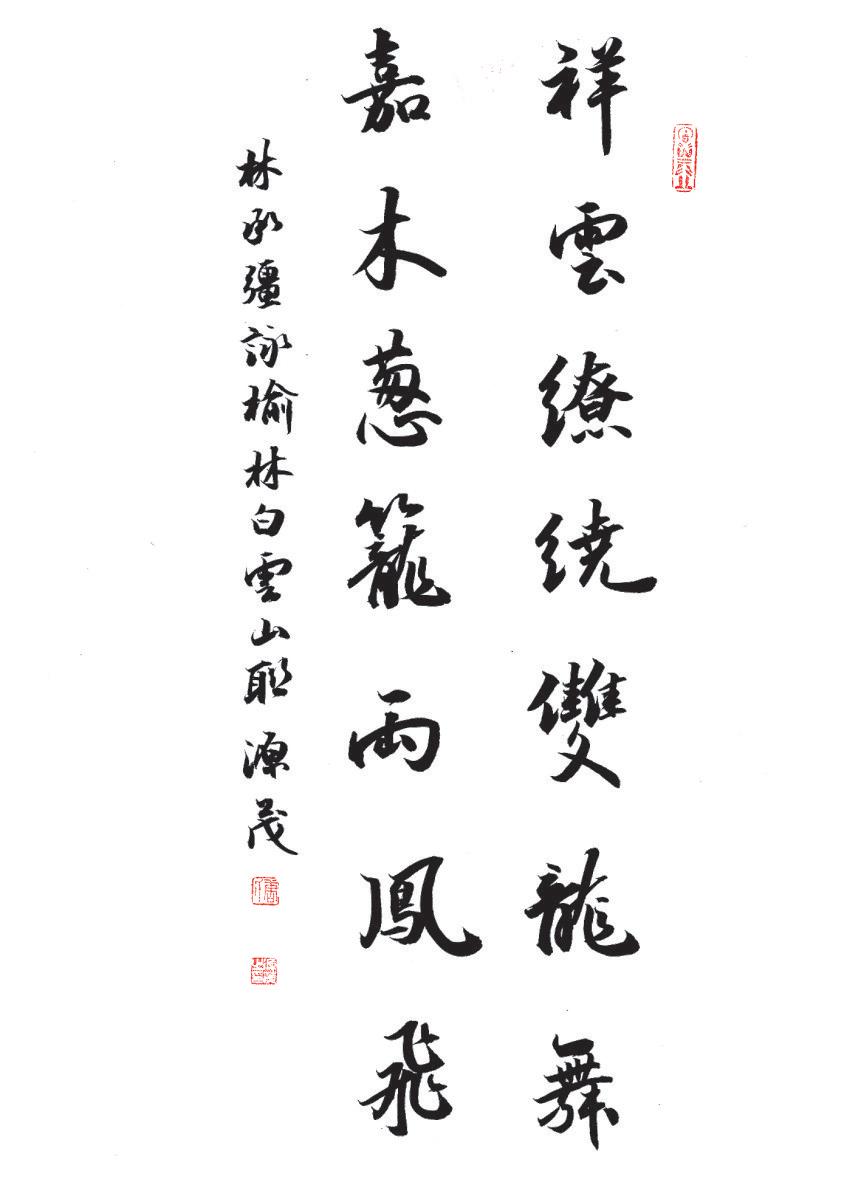 祥雲繚繞雙龍舞
嘉木葱籠兩鳳飛
林承疆詠榆林白雲山 耿源茂